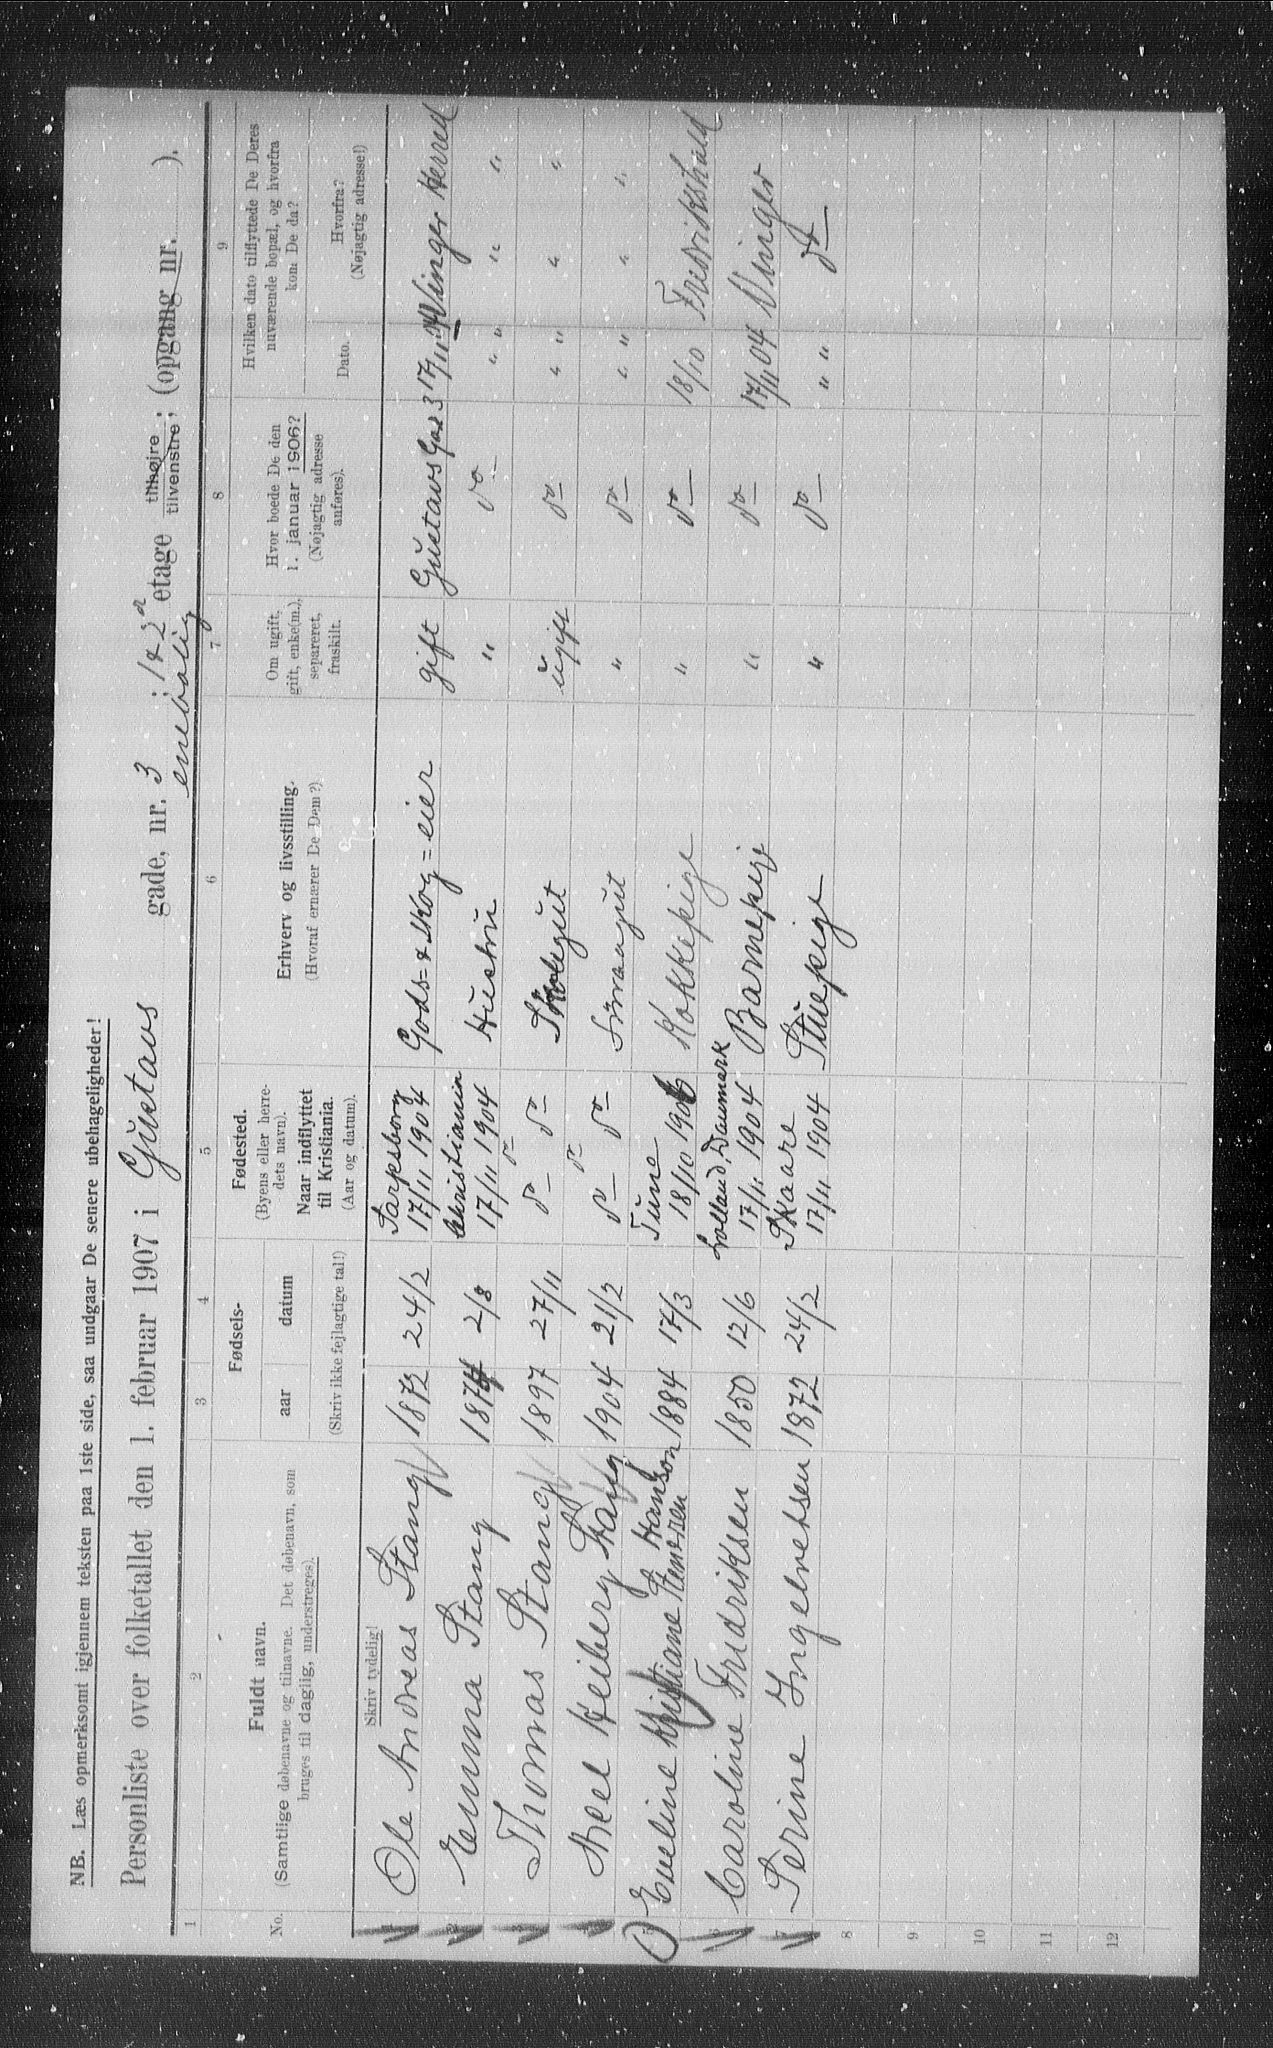 NB. Læs opmerksomt igjennem teksten paa 1ste side, saa undgaar De senere ubehageligheder!
Personliste over folketallet den 1. februar 1907 i Gustavs gade, nr. 3 ; 1 & 2 etage tilhøjre tilvenstre; (opgang nr. ).
enebolig
1 2 3 4 5 6 7 8 9
No. Fuldt navn. (Samtlige døbenavne og tilnavne. Det døbenavn, som bruges til daglig, understreges).
Fødsels- aar datum
(Skriv ikke fejlagtige tal!)
Fødested. (Byens eller herredets navn). Naar indflyttet til Kristiania. (Aar og datum).
Erhverv og livsstilling. (Hvoraf ernærer De Dem?)
Om ugift, gift, enke(m.), separeret, fraskilt.
Hvor boede De den 1. januar 1906? (Nøjagtig adresse anføres).
Hvilken dato tilflyttede De Deres nuværende bopæl, og hvorfra kom De da?
Dato. Hvorfra? (Nøjagtig adresse!)
Skriv tydelig!
1 Ole Andreas Stang 1873 24/2 Sarpsborg 17/11 1904 Gods= & Skog=eier gift Gustavs Gad 3 17/11 04 Vinger Herred
2 Emma Stang 1874 2/8 Christiania 17/11 1904 Hustru " do " " " "
3 Thomas Stang 1897 27/11 do do do Skolegut ugift do " " " "
4 Axel Heiberg Stang 1904 21/2 do do do Smaagut " do " " " "
5 Eveline Kristiane Stenersen Hanson 1884 17/3 Tune 18/10 1906 Kokkepige " do 18/10 Fredrikshald
6 Caroline Fredriksen 1850 12/6 Lolland, Danmark 17/11 1904 Barnepige " do 17/11 04 Vinger
7 Perine Ingebretsen 1872 24/2 Skaare 17/11 1904 Stuepige " do " " do
8
9
10
11
12